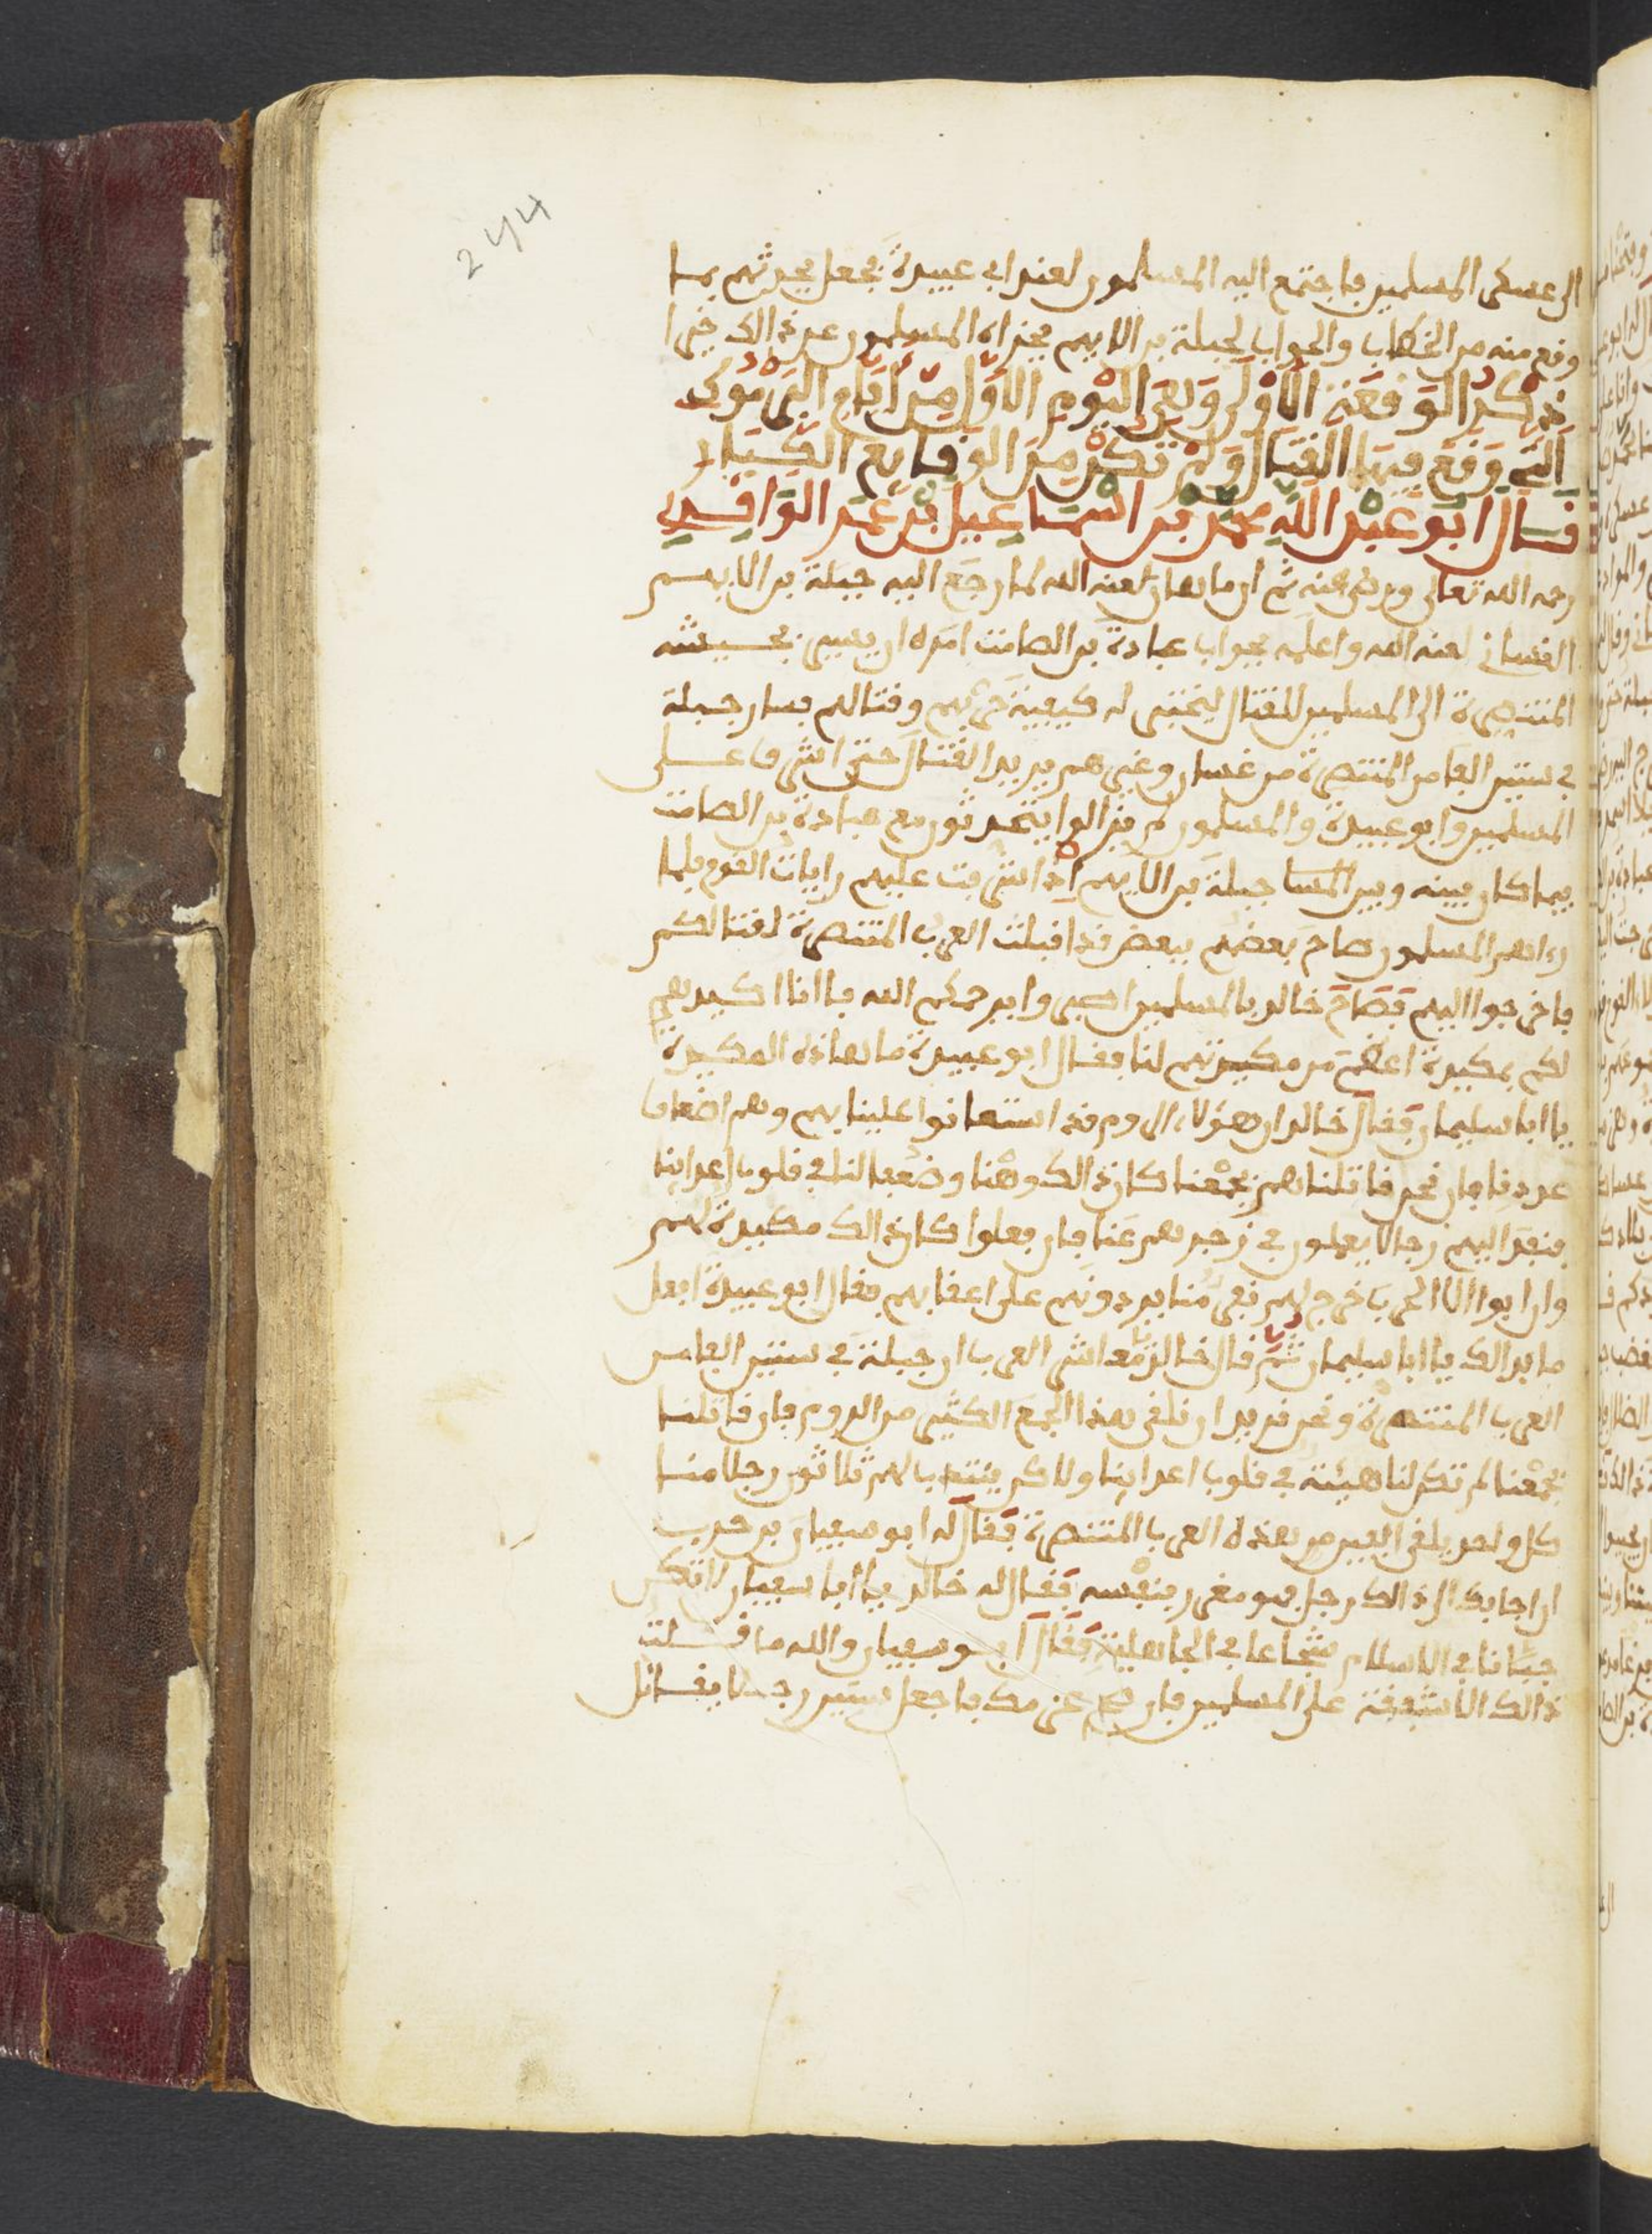 244
الى عسكر المسلمين فاجتمع اليه المسلمون لعند ابي عبيدة فجعل يحدثهم بما
وقع منه من الخطاب والجواب لجبلة بن الايهم فجزاه المسلمون عن ذالك خيرا
ذكر الوقعة الاولى وهي اليوم الاول من ايام اليرموك
التي وقع فيها القتال ولم تكن من الوقايع الكبار
قال ابو عبد الله محمد بن اسماعيل بن عمر الواقدي
رحمه الله تعالى ورضي عنه ثم ان ماهان لعنه الله لما رجع اليه جبلة بن الايهم
الغساني لعنه الله واعلمه بجواب عبادة بن الصامت امره ان يسير بجيشه
المتنصرة الى المسلمين للقتال ليختبر له كيفية حربهم وقتالهم فسار جبلة
في ستين الفا من المتنصرة من غسان وغيرهم يريد القتال حتى اشرف على
المسلمين وابو عبيدة والمسلمون لم يزالوا يتحدثون مع عبادة بن الصامت
فيما كان بينه وبين جبلة بن الايهم اذ اشرفت عليهم رايات القوم فلما
رءاهم المسلمون صاح بعضهم ببعض قد اقبلت العرب المتنصرة لقتالكم
فاخرجوا اليهم فصاح خالد بالمسلمين اصبروا يرحمكم الله فانا اكيدهم
لكم بمكيدة اعظم من مكيدتهم لنا فقال ابو عبيدة ما هاذه المكيدة
يا ابا سليمان فقال خالد ان هؤلاء الروم قد استعانوا علينا بهم وهم اضعاف
عددنا فان نحن قاتلناهم بجمعنا كان ذالك وهنا وضعفا لنا في قلوب اعداينا
فنبعث اليهم رجالا يعملون في زجرهم عنا فان فعلوا كان ذالك مكيدة لهم
وان ابوا الا الحرب خرج لهم نفر منا يردونهم على اعقابهم فقال ابو عبيدة افعل
ما بدالك يا ابا سليمان ثم قال خالد يا معاشر العرب ان جبلة في ستين الفا من
العرب المتنصرة ونحن نريد ان نلقى بهذا الجمع الكثير من الروم فان قاتلنا
بجمعنا لم تكن لنا هيبة في قلوب اعداينا ولاكن ينتدب لهم ثلاثون رجلا منا
كل واحد يلقى الفين من هذه العرب المتنصرة فقال له ابو سفيان بن حرب
ان اجابك الى ذالك رجل فهو مغرر بنفسه فقال له خالد يا ابا سفيان لا تكن
جبانا في الاسلام شجاعا في الجاهلية فقال ابو سفيان والله ما قلت
ذالك الا شفقة على المسلمين فان صح عزمك فاجعل ستين رجلا يقاتل